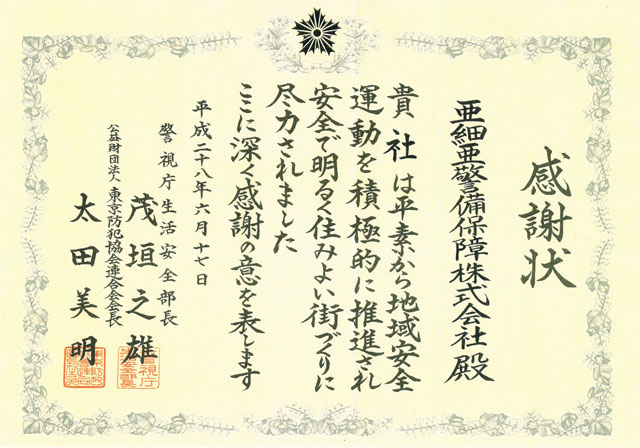 感謝状
亜細亜警備保障株式会社殿
貴社は平素から地域安全
運動を積極的に推進され
安全で明るく住みよい街づくりに
尽力されました
ここに深く感謝の意を表します
平成二十八年六月十七日
警視庁生活安全部長
茂垣之雄
公益財団法人東京防犯協会連合会会長
太田美明